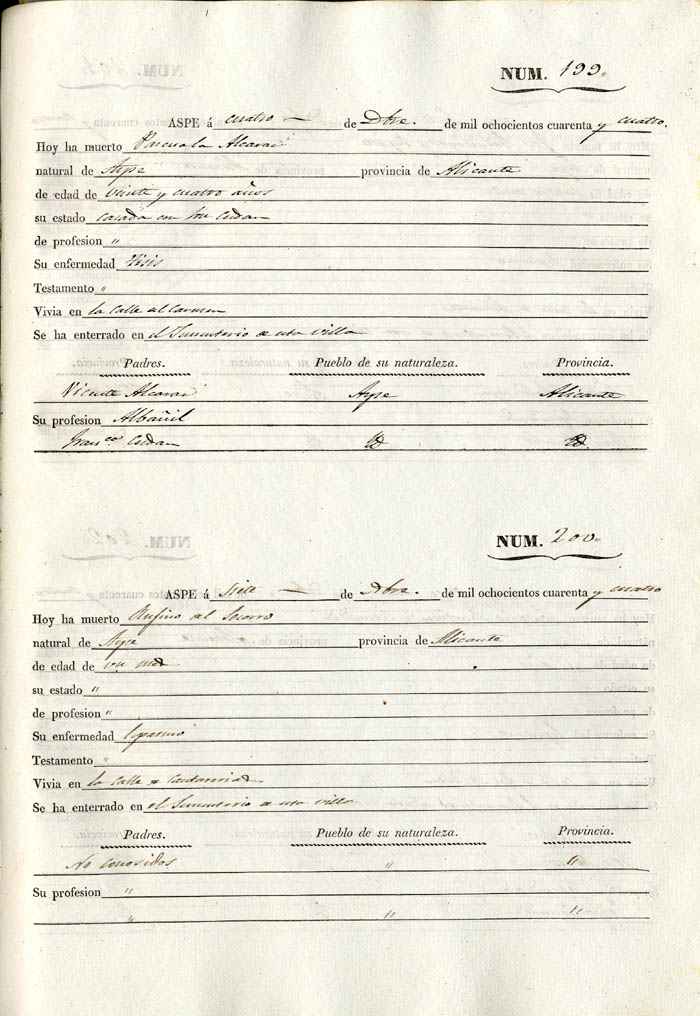 NUM. 199,,
ASPE á cuatro — de Dbre. de mil ochocientos cuarenta y cuatro.
Hoy ha muerto Pascuala Alcaraz
natural de Aspe provincia de Alicante
de edad de veinte y cuatro años
su estado casada con
de profesion ,,
Su enfermedad Tisis
Testamento ,,
Vivia en la Calle del Carmen
Se ha enterrado en el Sementerio de esta Villa
Padres. Pueblo de su naturaleza. Provincia.
Vicente Alcaraz Aspe Alicante
Su profesion Albañil
Franca Id Id
NUM. 200,,
ASPE á siete — de Dbre. de mil ochocientos cuarenta y cuatro
Hoy ha muerto Rufino del Socorro
natural de Aspe provincia de Alicante
de edad de un mes
su estado ,,
de profesion ,,
Su enfermedad Espasmo
Testamento ,,
Vivia en la Calle de
Se ha enterrado en el Sementerio de esta villa
Padres. Pueblo de su naturaleza. Provincia.
No conosidos ,, ,,
Su profesion ,,
,, ,, ,,